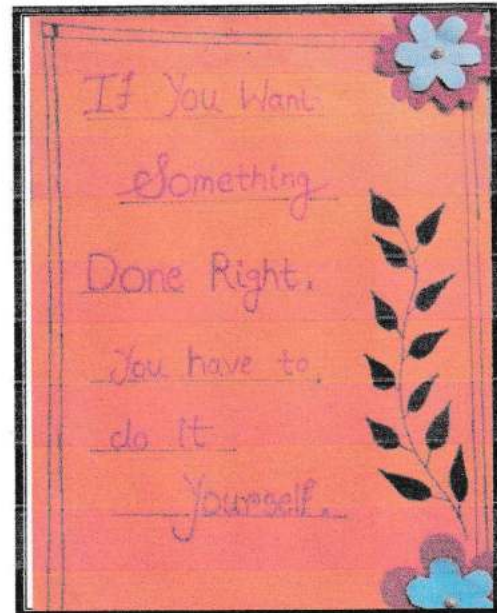 If You Want
Something
Done Right.
You have to.
do it
Yourself.